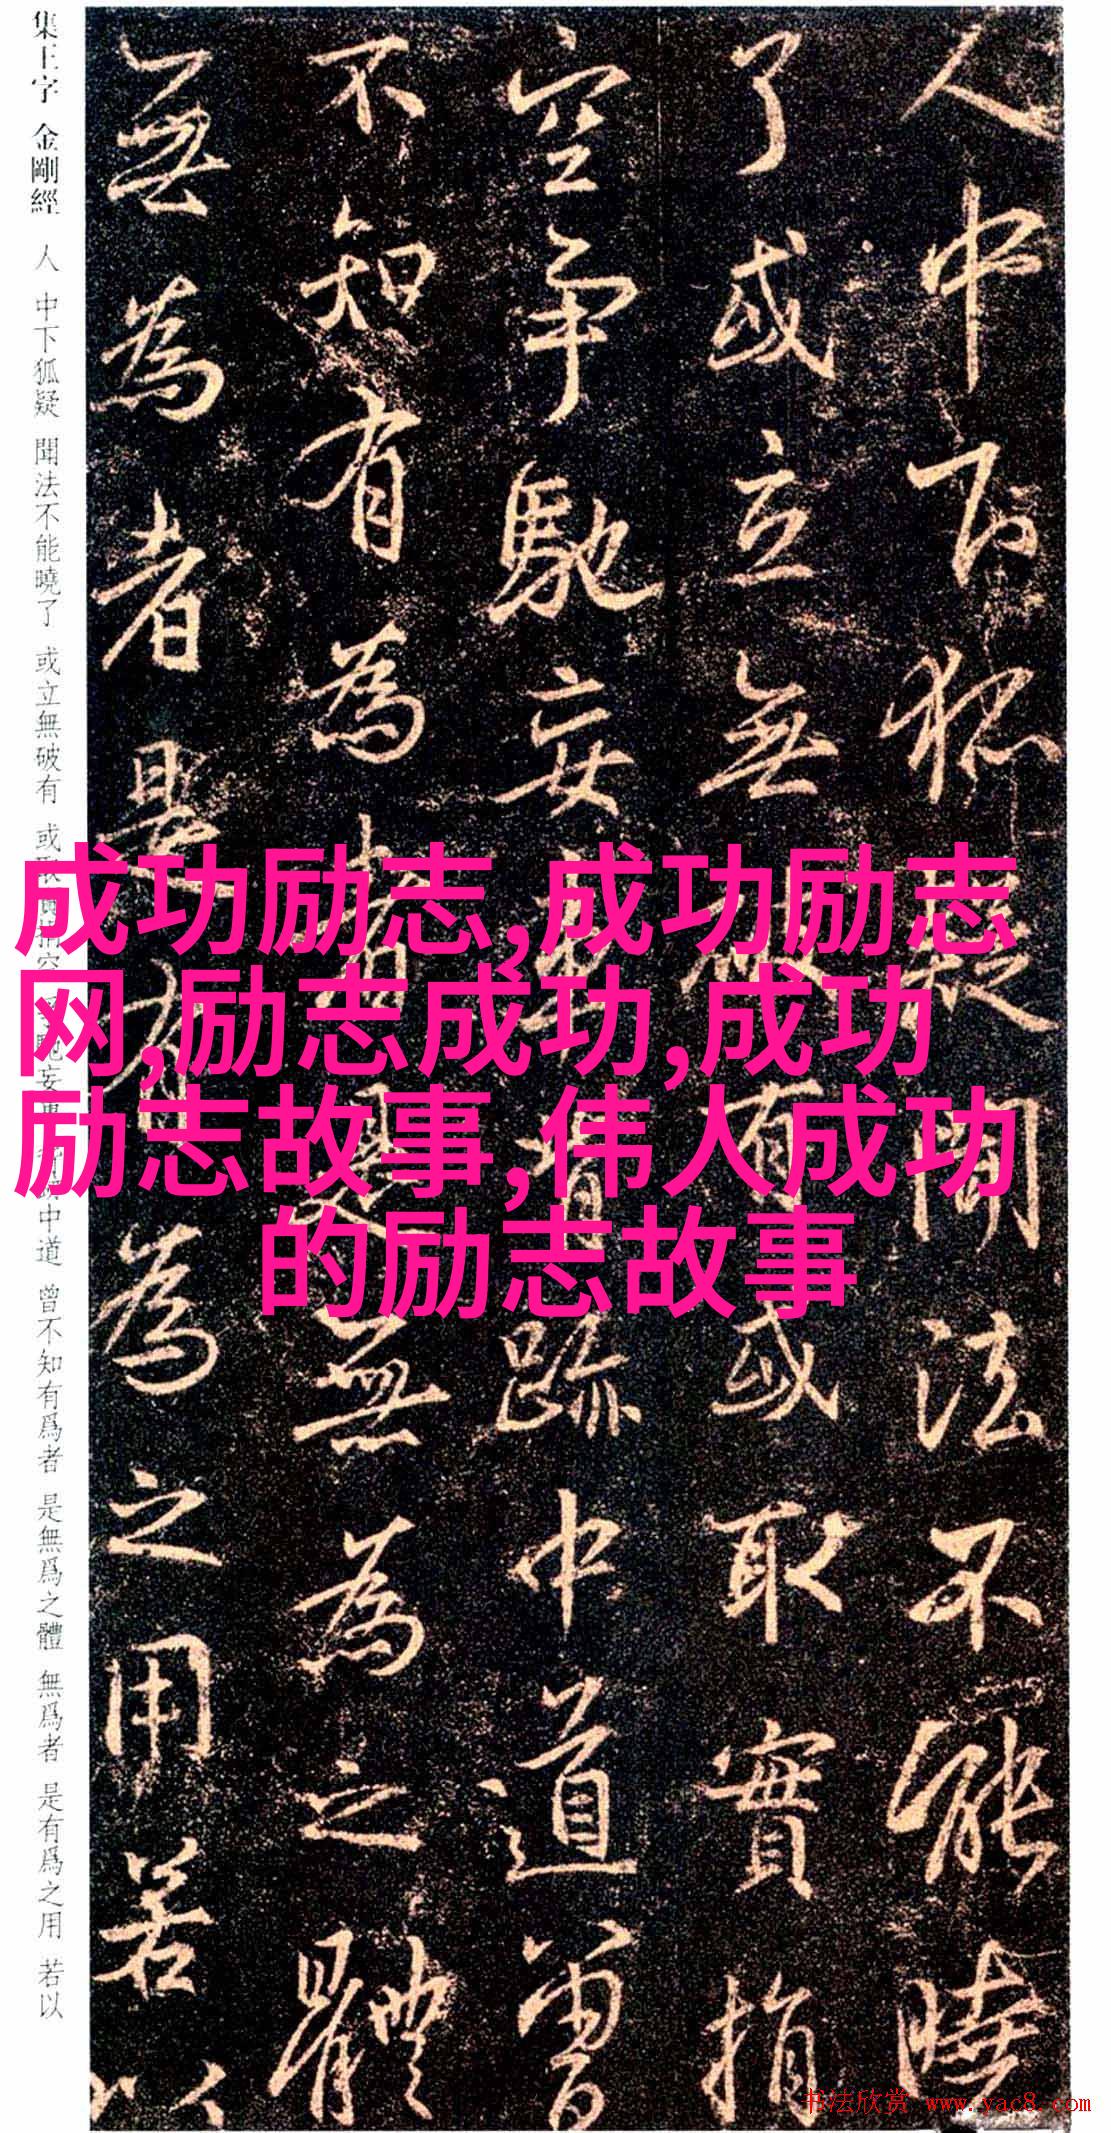 集王字 金剛經 人 中下狐疑 聞法不能曉了 或立無破有 或取
中道 曾不知有爲者 是無爲之體 無爲者 是有爲之用 若以
人中下狐疑聞法不能曉
了或立無破有或取實捐
空争馳妄
蹟中道曾
不知有為者是無為之體
無為者是有為之用若以
成功励志,成功励志
网,励志成功,成功
励志故事,伟人成功
的励志故事
书法欣赏 www.yac8.com